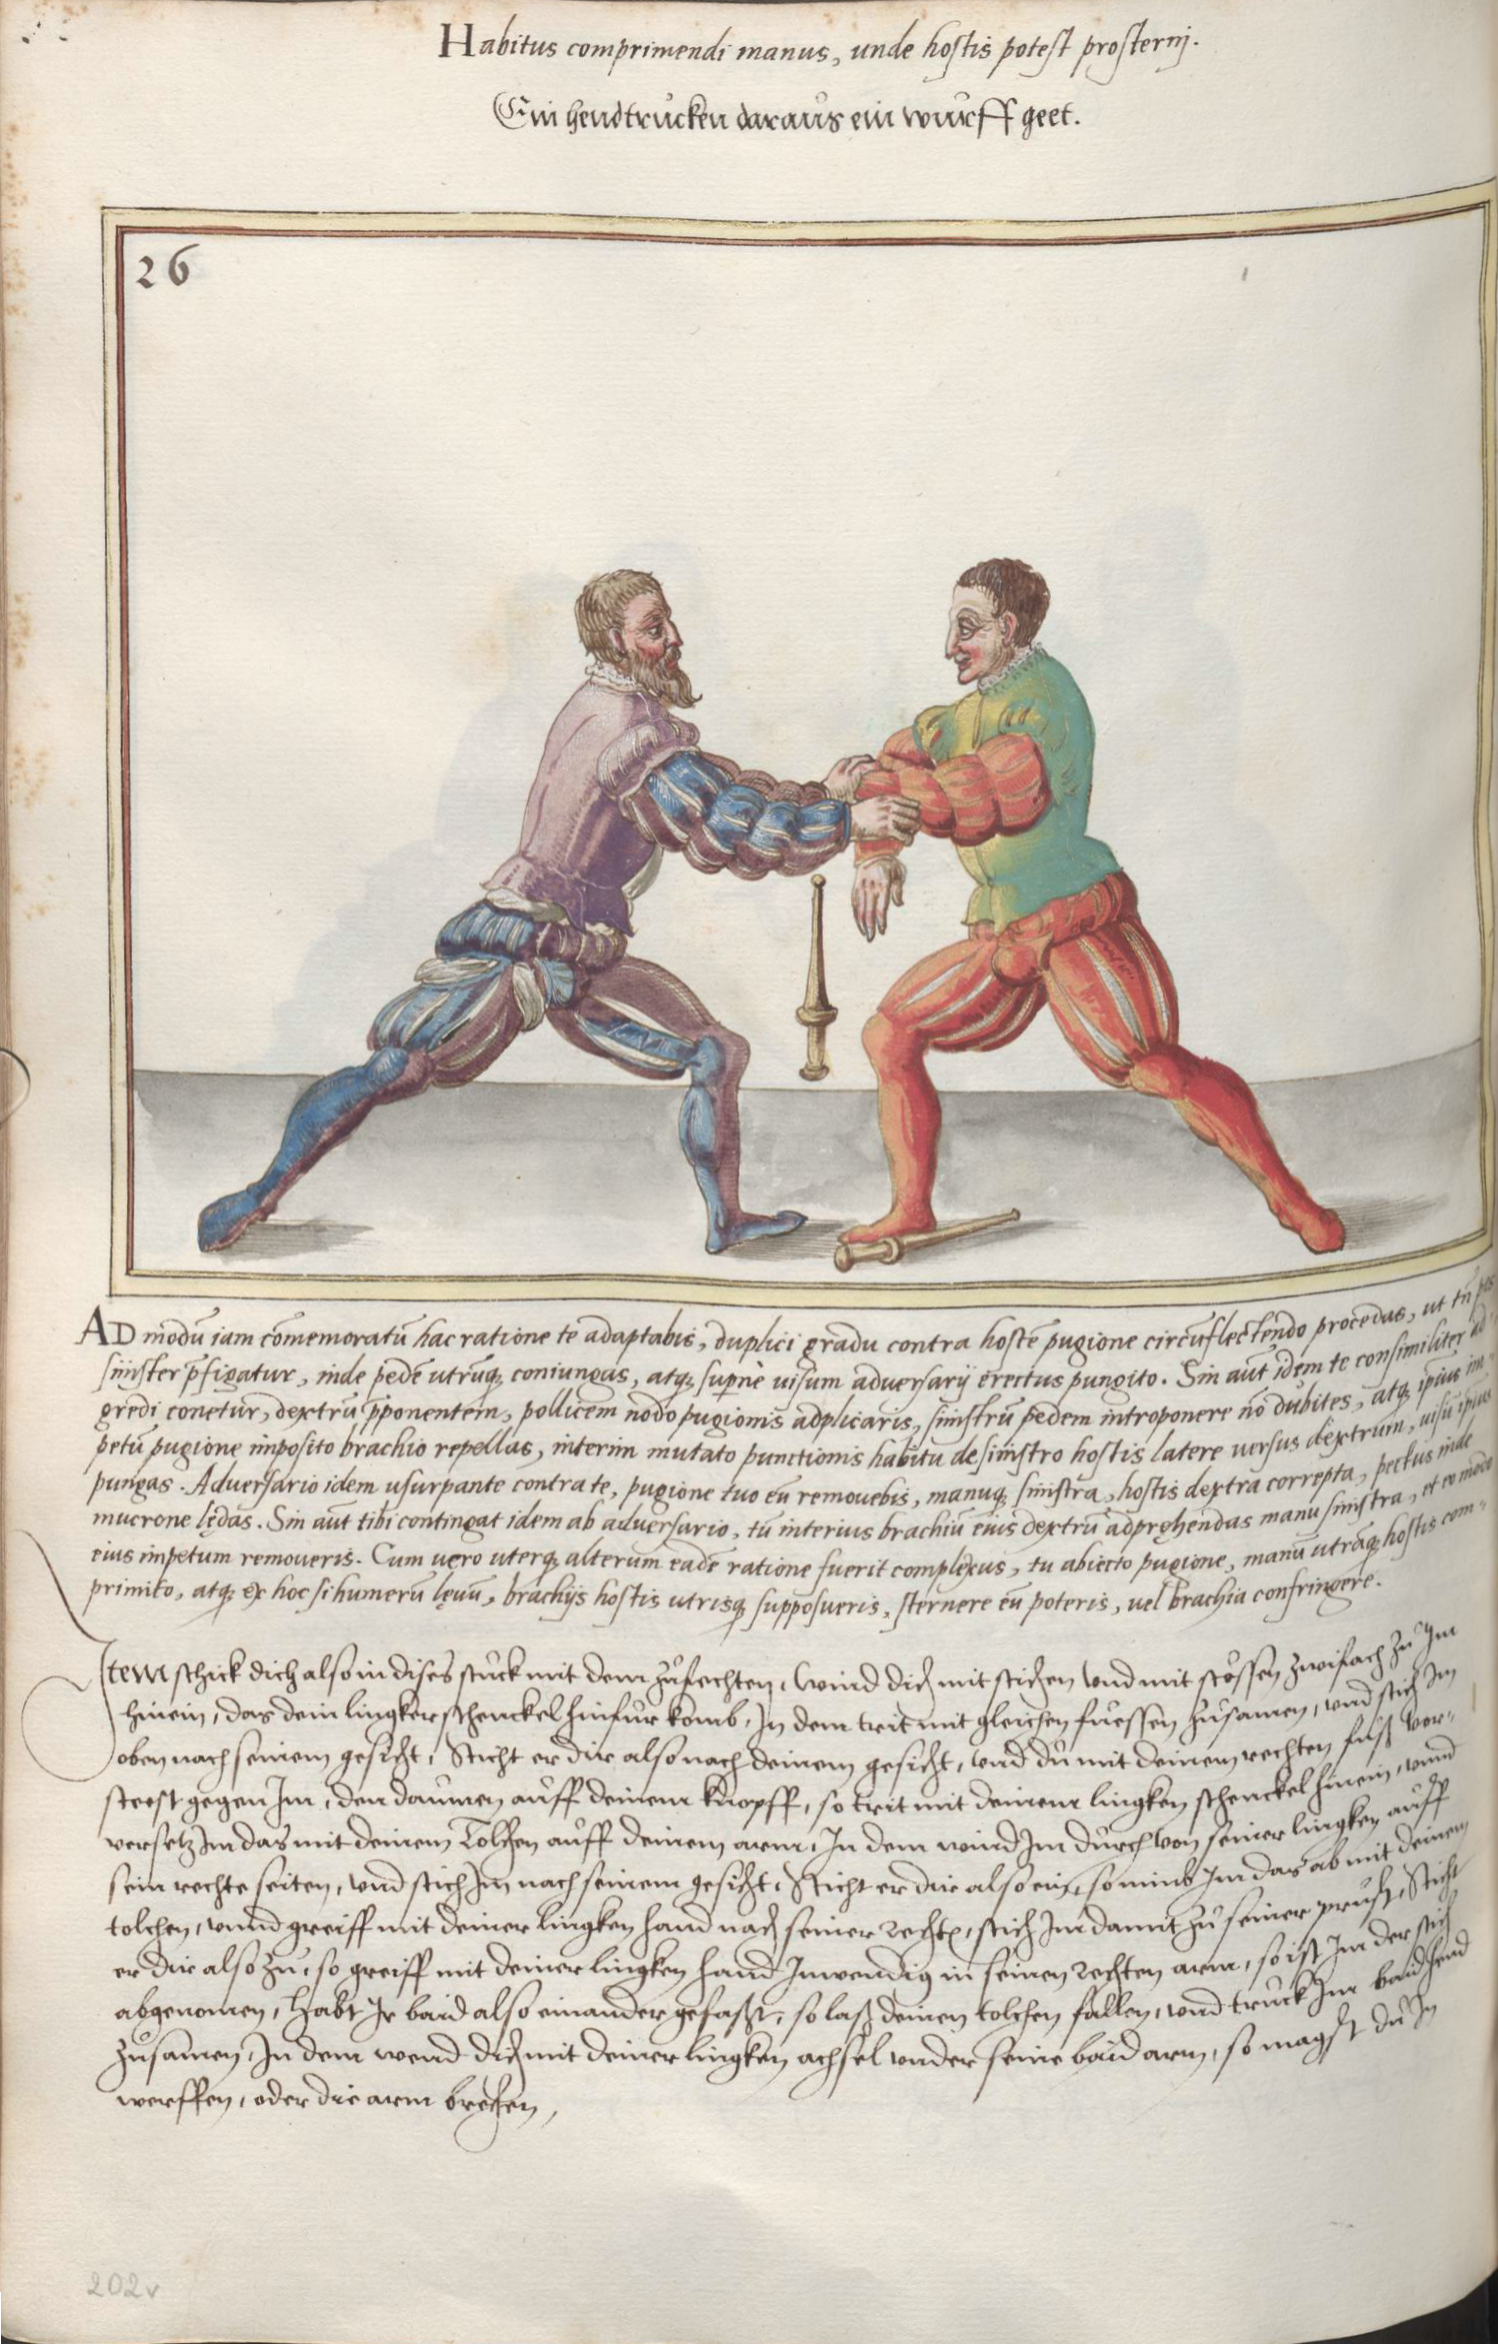 Habitus comprimendi manus, unde hostis potest prosternj.
Ein hendtrucken daraus ein wurff geet.
26
AD modū iam cōmemoratū hac ratione te adaptabis, duplici gradu contra hostē pugione circūflectendo procedas, ut tn̄ pes
sinister p̄figatur, inde pedē utrūq; coniungas, atq; supernè uisum adversarij erectus pungito. Sin aūt idem te consimiliter ad-
gredi conetur, dextrū p̄ponentem, pollicem nodo pugionis adplicaris, sinistrū pedem introponere nō dubites, atq; ipsius im-
petū pugione imposito brachio repellas, interim mutato punctionis habitu de sinistro hostis latere uersus dextrum, uisū ipsius
pungas. Adversario idem usurpante contra te, pugione tuo eū remouebis, manuq; sinistra, hostis dextra correpta, pectus inde
mucrone lędas. Sin aūt tibi contingat idem ab adversario, tū interius brachiū eius dextrū adpręhendas manu sinistra, et eo modo
eius impetum remoueris. Cum uero uterq; alterum eadē ratione fuerit complexus, tu abiecto pugione, manū utrāq; hostis com-
primito, atq; ex hoc si humerū lęuū, brachijs hostis utrisq; supposueris, sternere eū poteris, uel brachia confringere.
Item schick dich also in dises stuck mit dem zufechten, Wind dich mit stichen vnd mit stössen zwifach zu Im
hinein, das dein lingker schenckel hinfür komb, In dem trit mit gleichen fuessen zusamen, vnd stich Im
oben nach seinem gesicht, Sticht er dir also nach deinem gesicht, vnd du mit deinem rechten fuß vor-
steest gegen Im, den daumen auff deinem knopff, so trit mit deinem lingken schenckel hinein, vnnd
versetz Im das mit deinem Tolchen auff deinem arm, In dem wind Im durch von seiner lingken auff
sein rechte seiten, vnd stich Im nach seinem gesicht, Sticht er dir also ein, so nimb Im das ab mit deinem
tolchen, vnnd greiff mit deiner lingken hand nach seiner rechten, stich Im damit zu seiner prust, Sticht
er dir also zu, so greiff mit deiner lingken hand Inwendig in seinen rechten arm, so ist Im der stich
abgenomen, Habt Ir baid also einander gefaßt, so laß deinen tolchen fallen, vnd truck Im baid hend
zusamen, In dem wend dich mit deiner lingken achsel vnder seine baid arm, so magst du In
werffen, oder die arm brechen,
202v